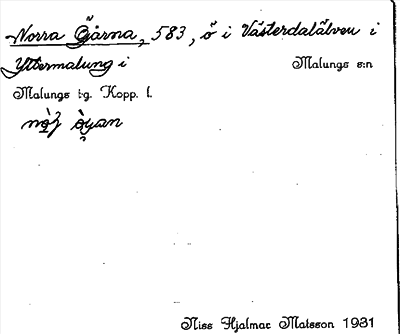 Norra Öjarna, 583, ö i Västerdalälven i
Yttermalung i Malungs s:n
Malungs tg. Kopp. l.
Niss Hjalmar Matsson 1931